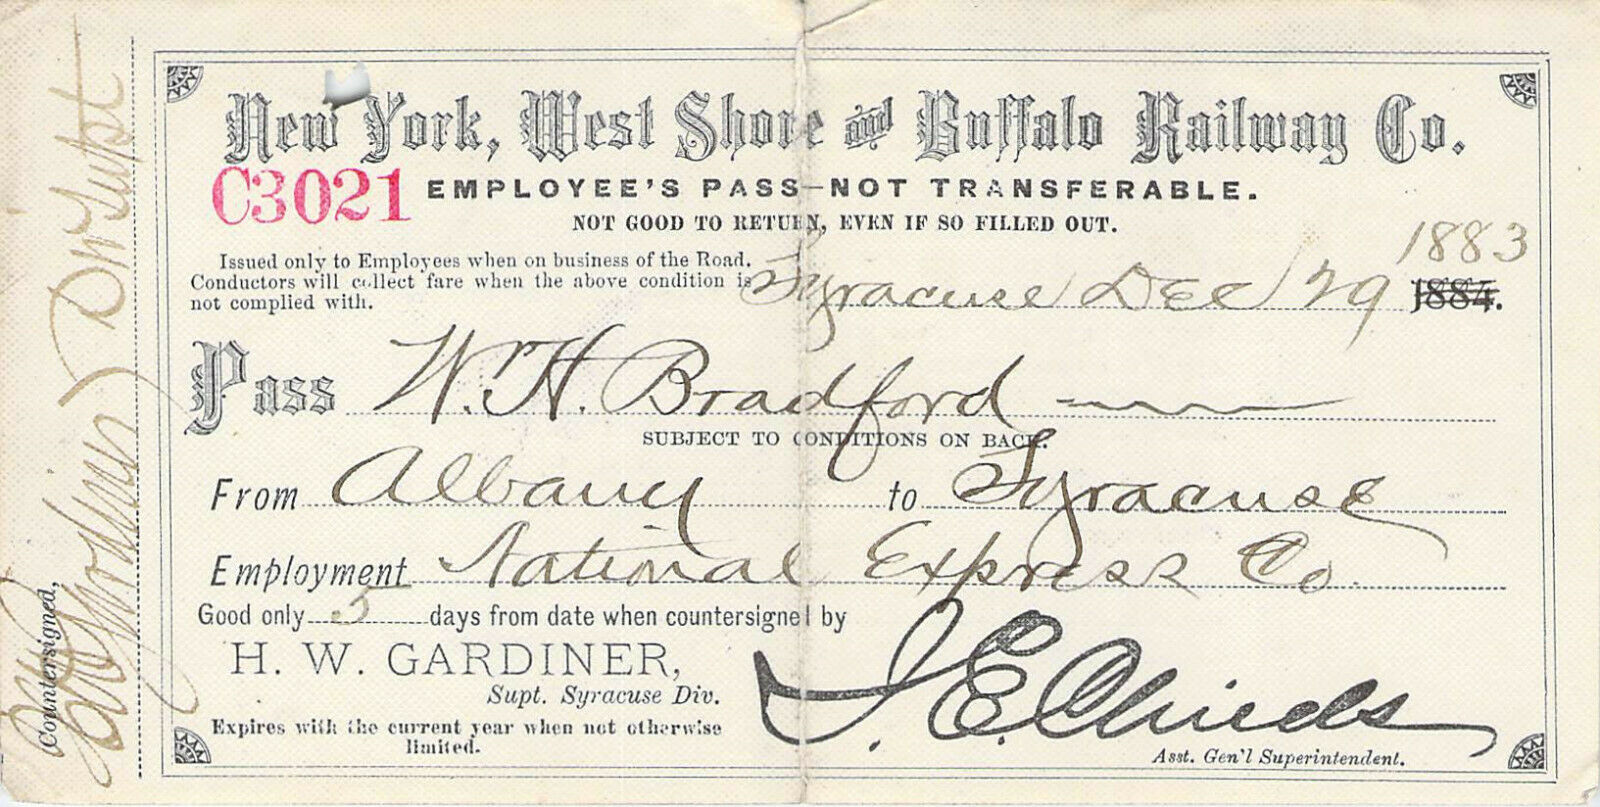 New York, West Shore and Buffalo Railway Co.
C3021 EMPLOYEE'S PASS—NOT TRANSFERABLE.
NOT GOOD TO RETURN, EVEN IF SO FILLED OUT.
Issued only to Employees when on business of the Road.
Conductors will collect fare when the above condition is
not complied with.
Syracuse Dec 29 1883 1884.
Pass W. H. Bradford
SUBJECT TO CONDITIONS ON BACK.
From Albany to Syracuse
Employment National Express Co.
Good only 5 days from date when countersigned by
H. W. GARDINER,
Supt. Syracuse Div.
Expires with the current year when not otherwise
limited.
J. E. Childs
Asst. Gen'l Superintendent.
Countersigned,
Div Supt